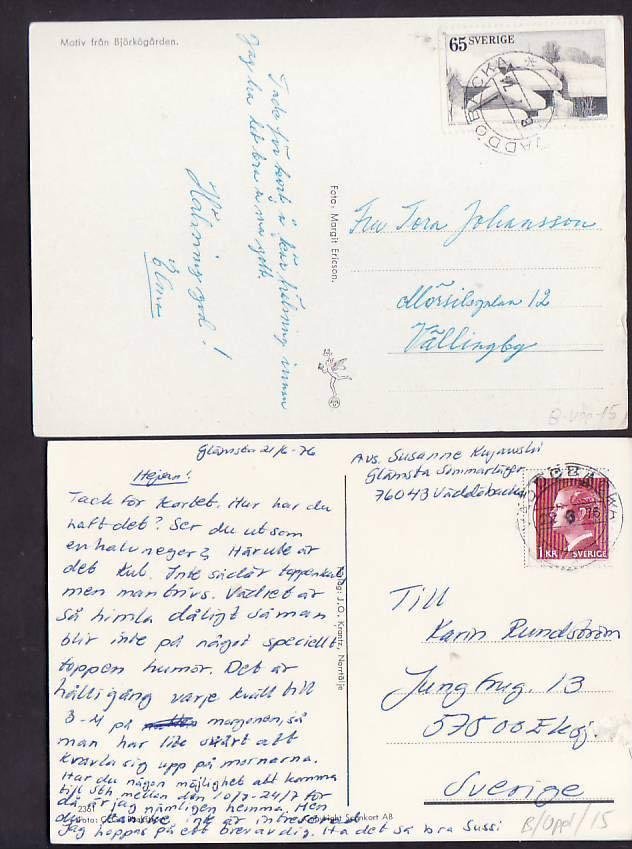 Motiv från Björkögården.
65 SVERIGE
VÄDDÖBACKA
Tack för kort o kär hälsning innan
Jag har det bra o mår gott.
Hälsning god!
Elma
Foto: Margit Ericson.
Fru Tora Johansson
Mörsilsgatan 12
Vällingby
B-Upp-15
Glämsta 21/6-76
Hejsan!
Tack för kortet. Hur har du
haft det? Ser du ut som
en halv neger? Här ute är
det kul. Inte sådär toppenkul
men man trivs. Vädret är
så himla dåligt så man
blir inte på något speciellt
toppen humör. Det är
hålligång varje kväll till
3-4 på morgonen, så
man har lite svårt att
kravla sig upp på mornarna.
Har du någon möjlighet att komma
till Sth mellan den 10/7-24/7 för
då är jag nämligen hemma. Men
du kanske inte är intresserad.
Jag hoppas på ett brev av dig. Ha det så bra Sussi
2361
J.O. Krantz, Norrtälje
Avs. Susanne Kujawski
Glämsta Sommarläger
76043 Väddöbacka
1 KR SVERIGE
Till
Karin Rundström
Jungfrug. 13
57500 Eksj.
Sverige
B/Uppl/15